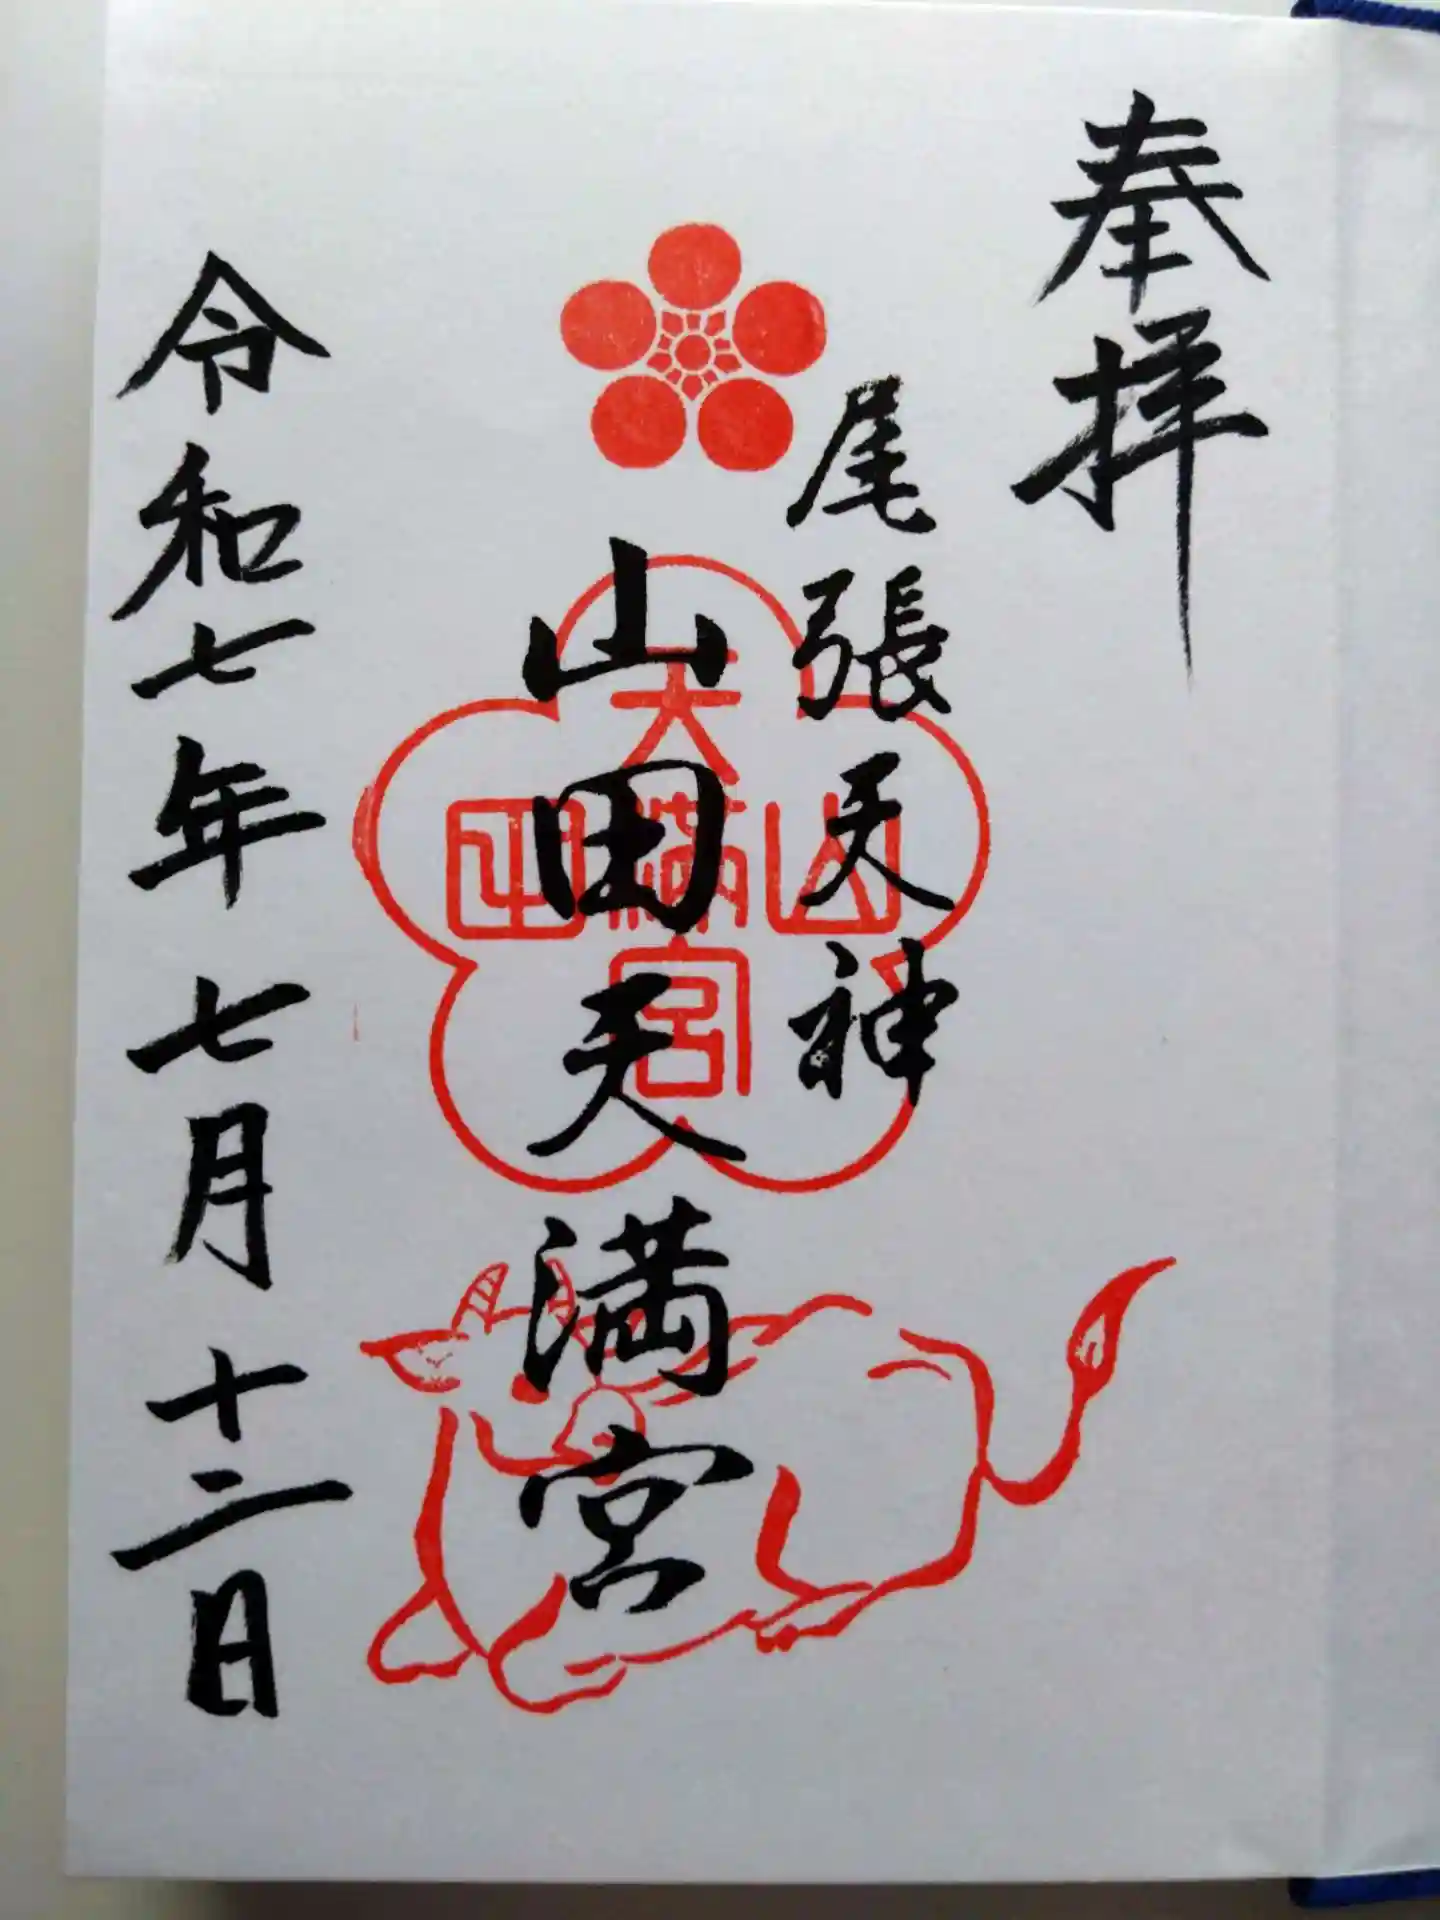 奉拝
尾張天神
山田天満宮
山田天満宮
令和七年七月十二日